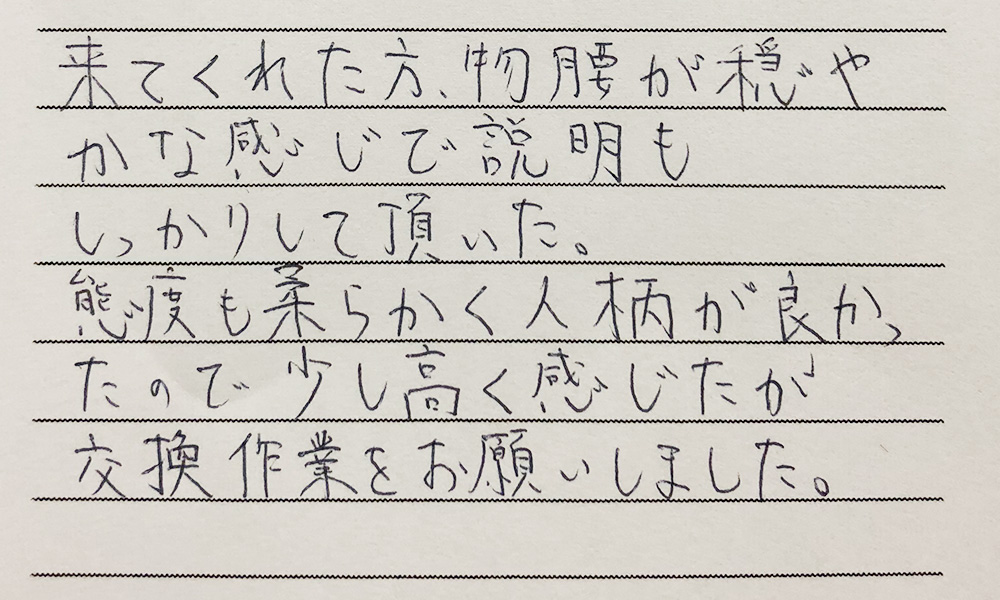 来てくれた方、物腰が穏や
かな感じで説明も
しっかりして頂いた。
態度も柔らかく人柄が良かっ
たので少し高く感じたが
交換作業をお願いしました。